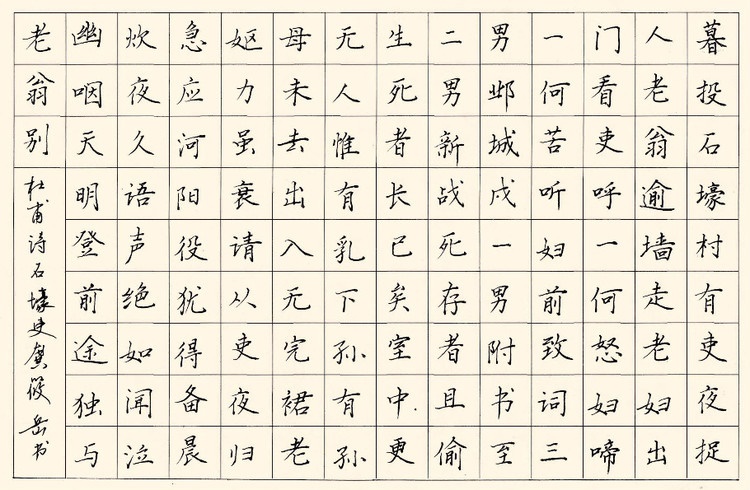 暮投石壕村有吏夜捉
人老翁逾墙走老妇出
门看吏呼一何怒妇啼
一何苦听妇前致词三
男邺城戍一男附书至
二男新战死存者且偷
生死者长已矣室中更
无人惟有乳下孙有孙
母未去出入无完裙老
妪力虽衰请从吏夜归
急应河阳役犹得备晨
炊夜久语声绝如闻泣
幽咽天明登前途独与
老翁别
杜甫诗石壕吏龚筱岳书